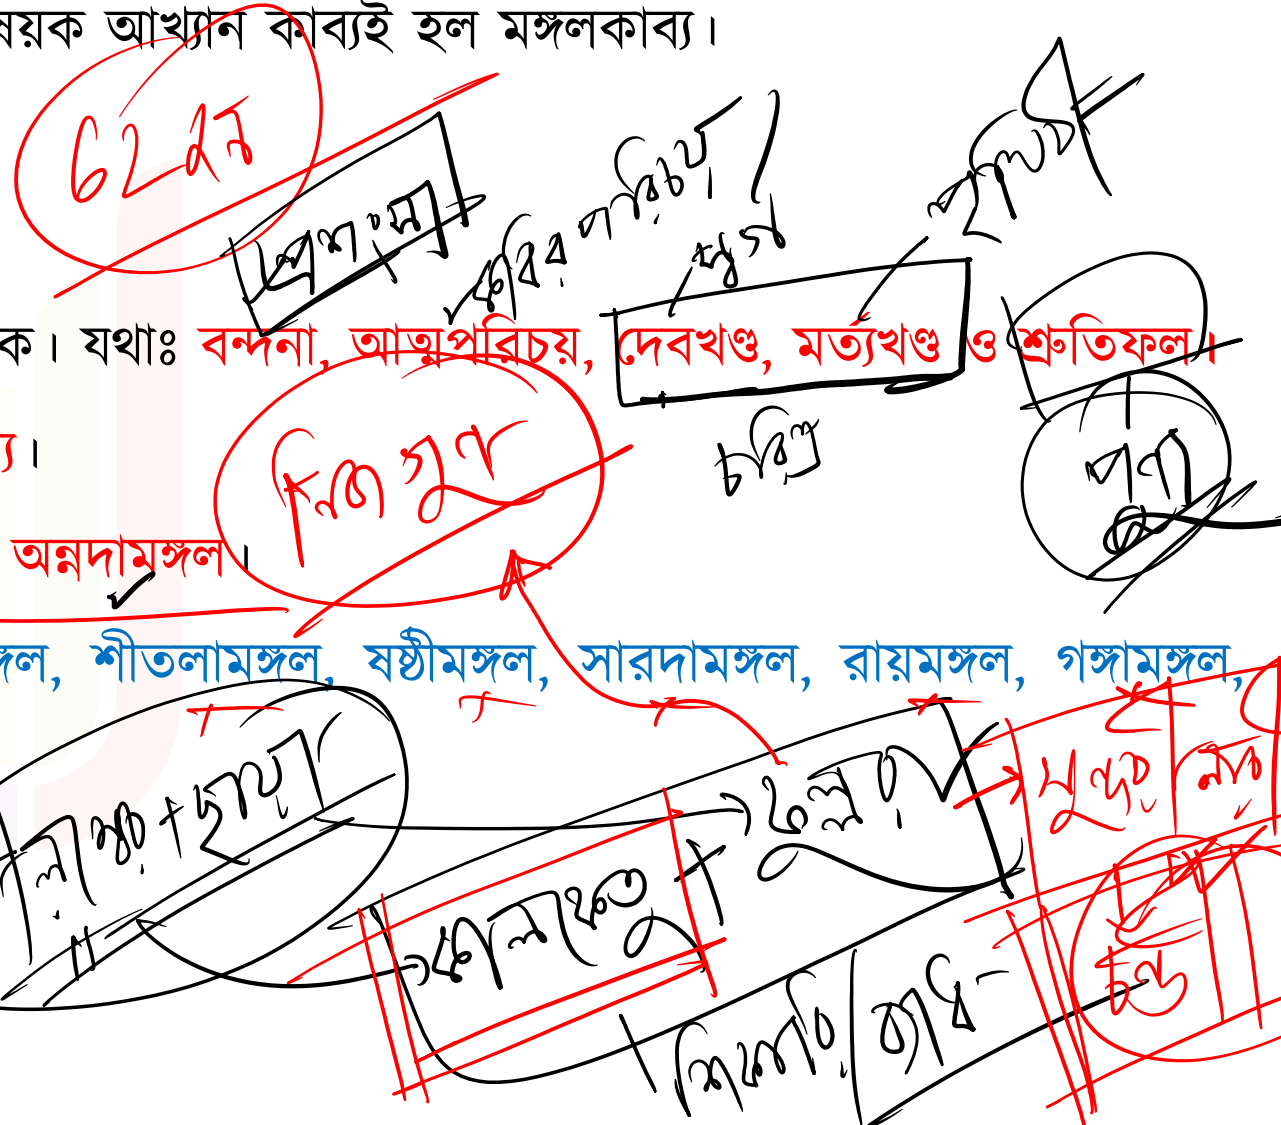 ষয়ক আখ্যান কাব্যই হল মঙ্গলকাব্য।
৬২ জন
প্রশংসা
কবির পরিচয়
স্বর্গ
ক। যথাঃ বন্দনা, আত্মপরিচয়, দেবখণ্ড, মর্ত্যখণ্ড ও শ্রুতিফল।
চরিত্র
্য।
নিজ গুণ
অন্নদামঙ্গল।
ঙ্গল, শীতলামঙ্গল, ষষ্ঠীমঙ্গল, সারদামঙ্গল, রায়মঙ্গল, গঙ্গামঙ্গল,
ছায়া
ফুল্লরা
কালকেতু
ব্যাধ